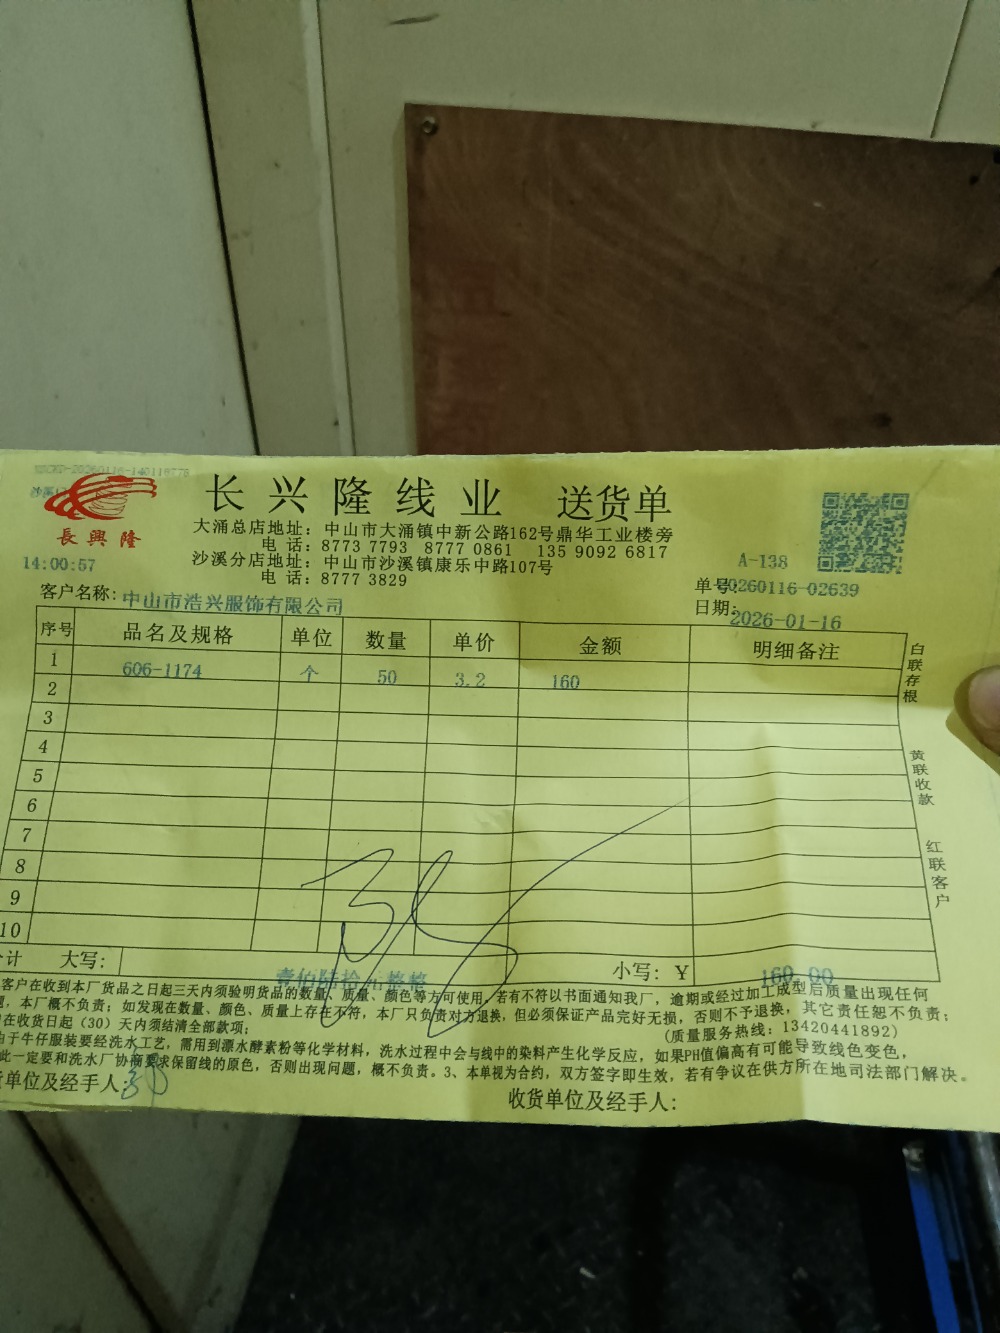 长兴隆线业 送货单
長興隆
大涌总店地址：中山市大涌镇中新公路162号鼎华工业楼旁
电 话：8773 7793 8777 0861 135 9092 6817
沙溪分店地址：中山市沙溪镇康乐中路107号
电 话：8777 3829
14:00:57
A-138
单号:20260116-02639
客户名称：中山市浩兴服饰有限公司
日期：2026-01-16
序号 品名及规格 单位 数量 单价 金额 明细备注
1 606-1174 个 50 3.2 160
2
3
4
5
6
7
8
9
10
白联存根
黄联收款
红联客户
合计 大写： 壹佰陆拾元整整 小写：￥ 160.00
客户在收到本厂货品之日起三天内须验明货品的数量、质量、颜色等方可使用，若有不符以书面通知我厂，逾期或经过加工成型后质量出现任何
题，本厂概不负责；如发现在数量、颜色、质量上存在不符，本厂只负责对方退换，但必须保证产品完好无损，否则不予退换，其它责任恕不负责；
在收货日起（30）天内须结清全部款项；
(质量服务热线：13420441892)
由于牛仔服装要经洗水工艺，需用到漂水酵素粉等化学材料，洗水过程中会与线中的染料产生化学反应，如果PH值偏高有可能导致线色变色，
此一定要和洗水厂协商要求保留线的原色，否则出现问题，概不负责。3、本单视为合约，双方签字即生效，若有争议在供方所在地司法部门解决。
货单位及经手人：
收货单位及经手人：